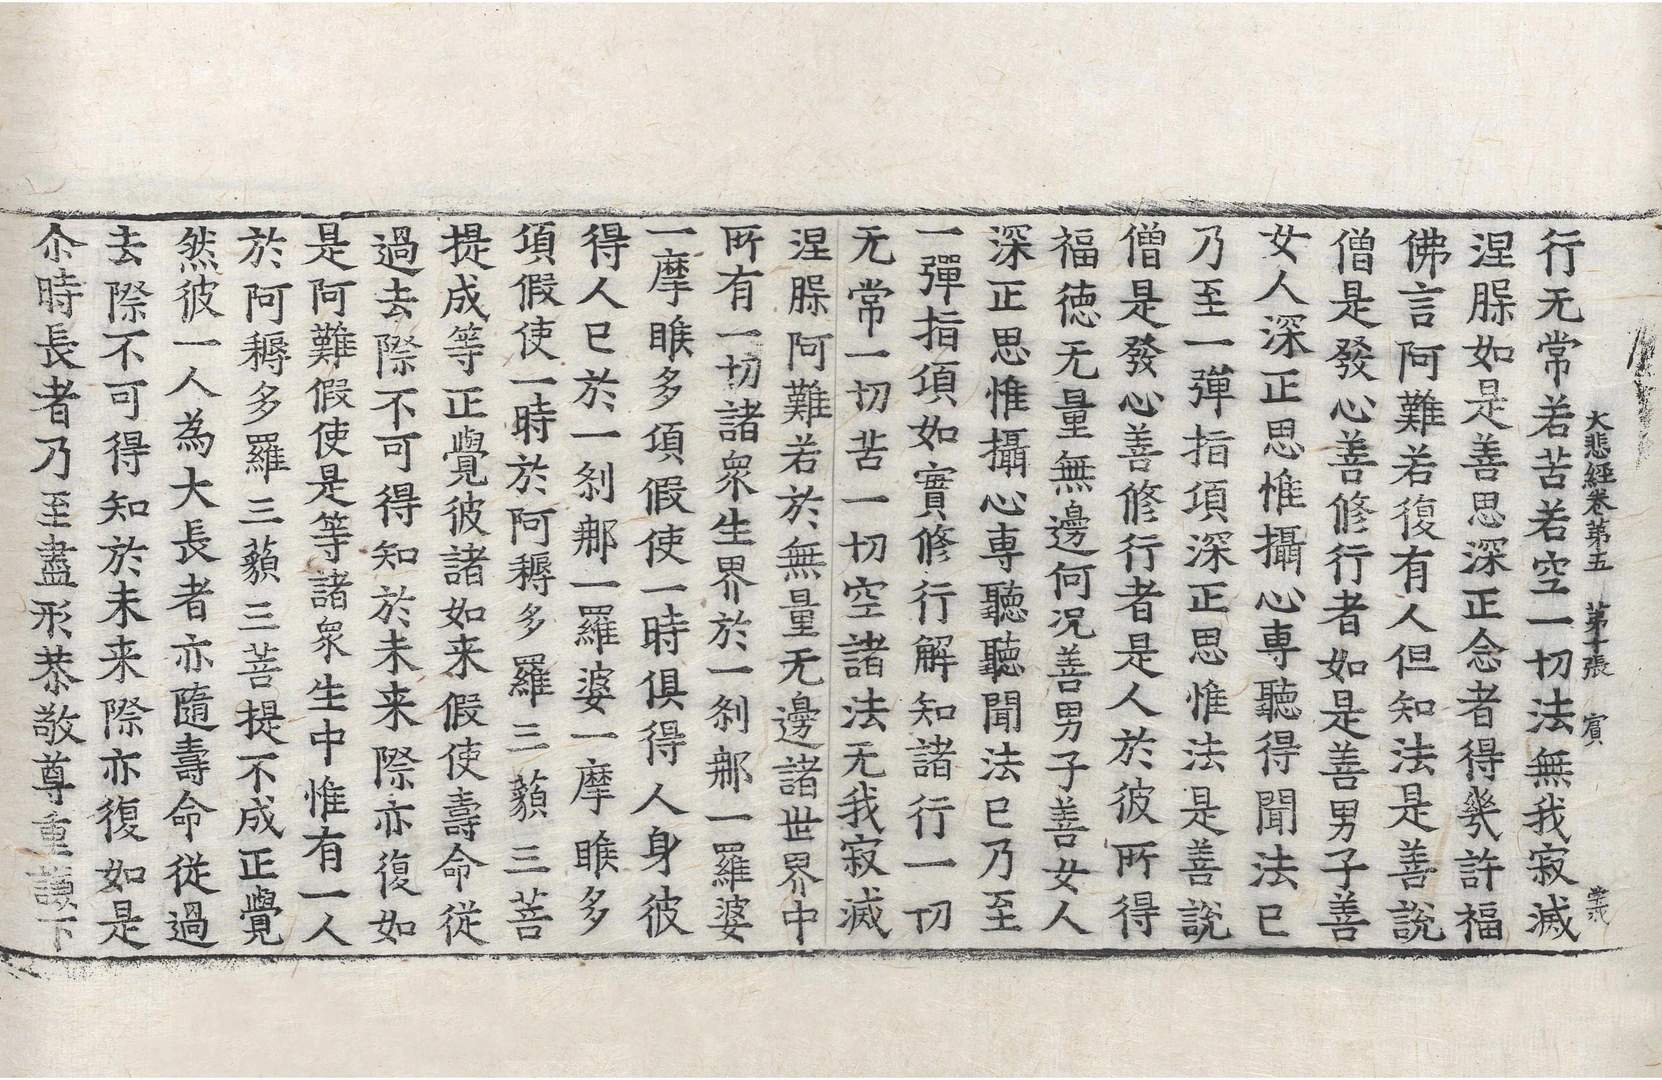 大悲經卷第五　第十張　賓　義
行无常若苦若空一切法無我寂滅
涅脲如是善思深正念者得㡬許福
佛言阿難若復有人但知法是善說
僧是發心善修行者如是善男子善
女人深正思惟攝心專聽得聞法已
乃至一彈指項深正思惟法是善說
僧是發心善修行者是人於彼所得
福德无量無邊何况善男子善女人
深正思惟攝心專聽聽聞法已乃至
一彈指項如實修行解知諸行一切
无常一切苦一切空諸法无我寂滅
涅脲阿難若於無量无邊諸世界中
所有一切諸衆生界於一刹那一羅婆
一摩睺多項假使一時俱得人身彼
得人已於一刹那一羅婆一摩睺多
項假使一時於阿耨多羅三藐三菩
提成等正覺彼諸如来假使壽命從
過去際不可得知於未来際亦復如
是阿難假使是等諸衆生中惟有一人
於阿耨多羅三藐三菩提不成正覺
然彼一人為大長者亦隨壽命從過
去際不可得知於未来際亦復如是
尒時長者乃至盡形恭敬尊重謙下